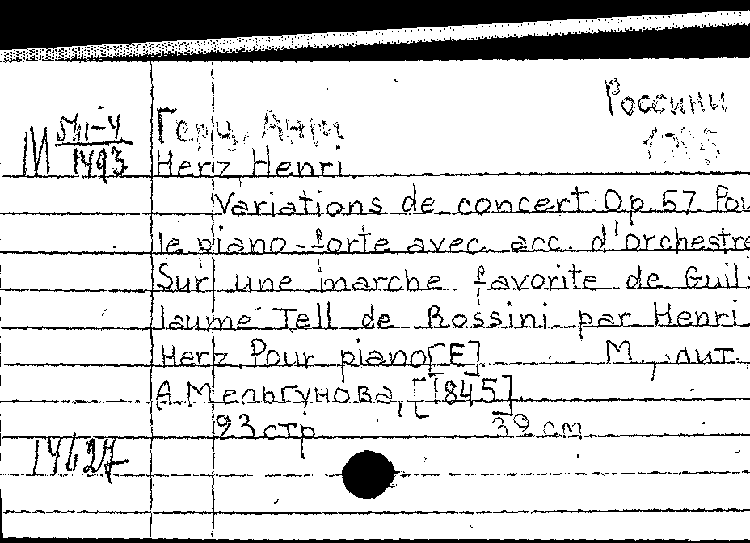 Россини
Герц, Анри
M 1493
Herz, Henri.
Variations de concert. Op. 57 Pou
le piano-forte avec. acc. d'orchestre
Sur une marche favorite de Guil-
laume Tell de Rossini par Henri
Herz. Pour piano [E]. М., лит.
А. Мельгунова, [1845].
23 стр. 32 см.
14627